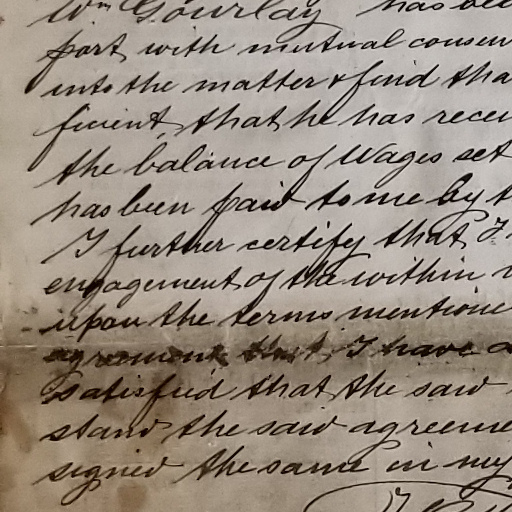 Wm Gourlay has bee
port with mutual consen
into the matter & find tha
ficient, that he has recei
the balance of Wages set
has been paid to me by t
I further certify that I
engagement of the within
upon the terms mentione
agreement that I have a
satisfied that the said
stand the said agreeme
signed the same in my